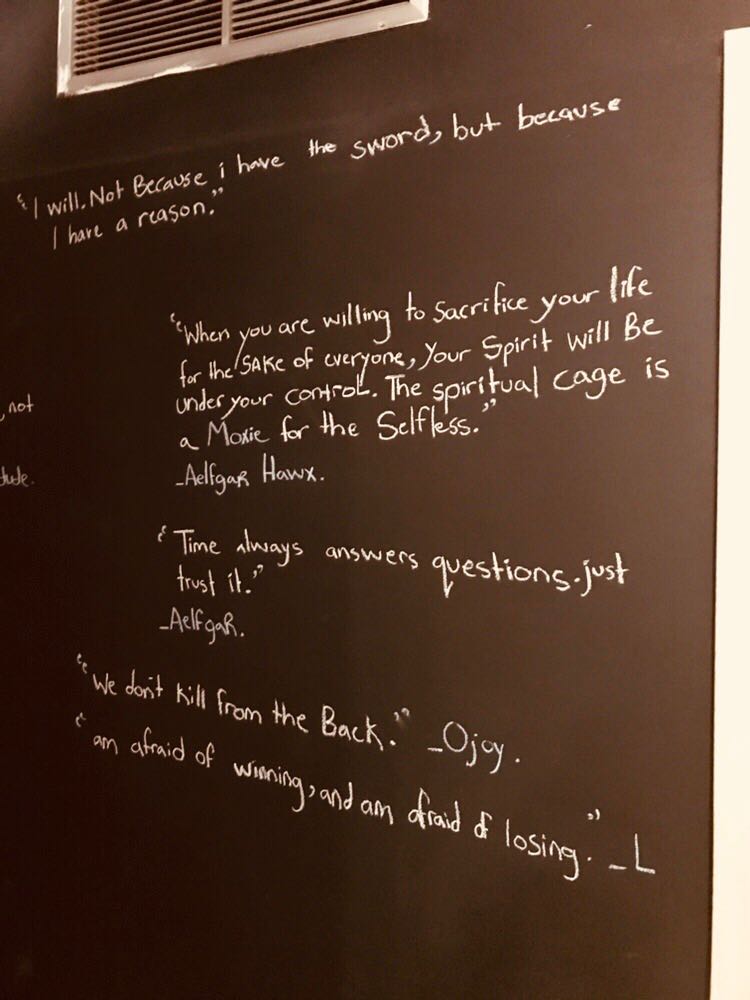 “I will. Not Because i have the sword, but because
I have a reason.”
“When you are willing to sacrifice your life
for the SAKE of everyone, Your Spirit will Be
under your control. The spiritual cage is
a Moxie for the Selfless.”
_Aelfgar Hawx.
, not
dude.
“Time always answers questions. just
trust it.”
_Aelfgar.
“We don't kill from the Back.” _Ojoy.
“am afraid of winning, and am afraid of losing.” _L